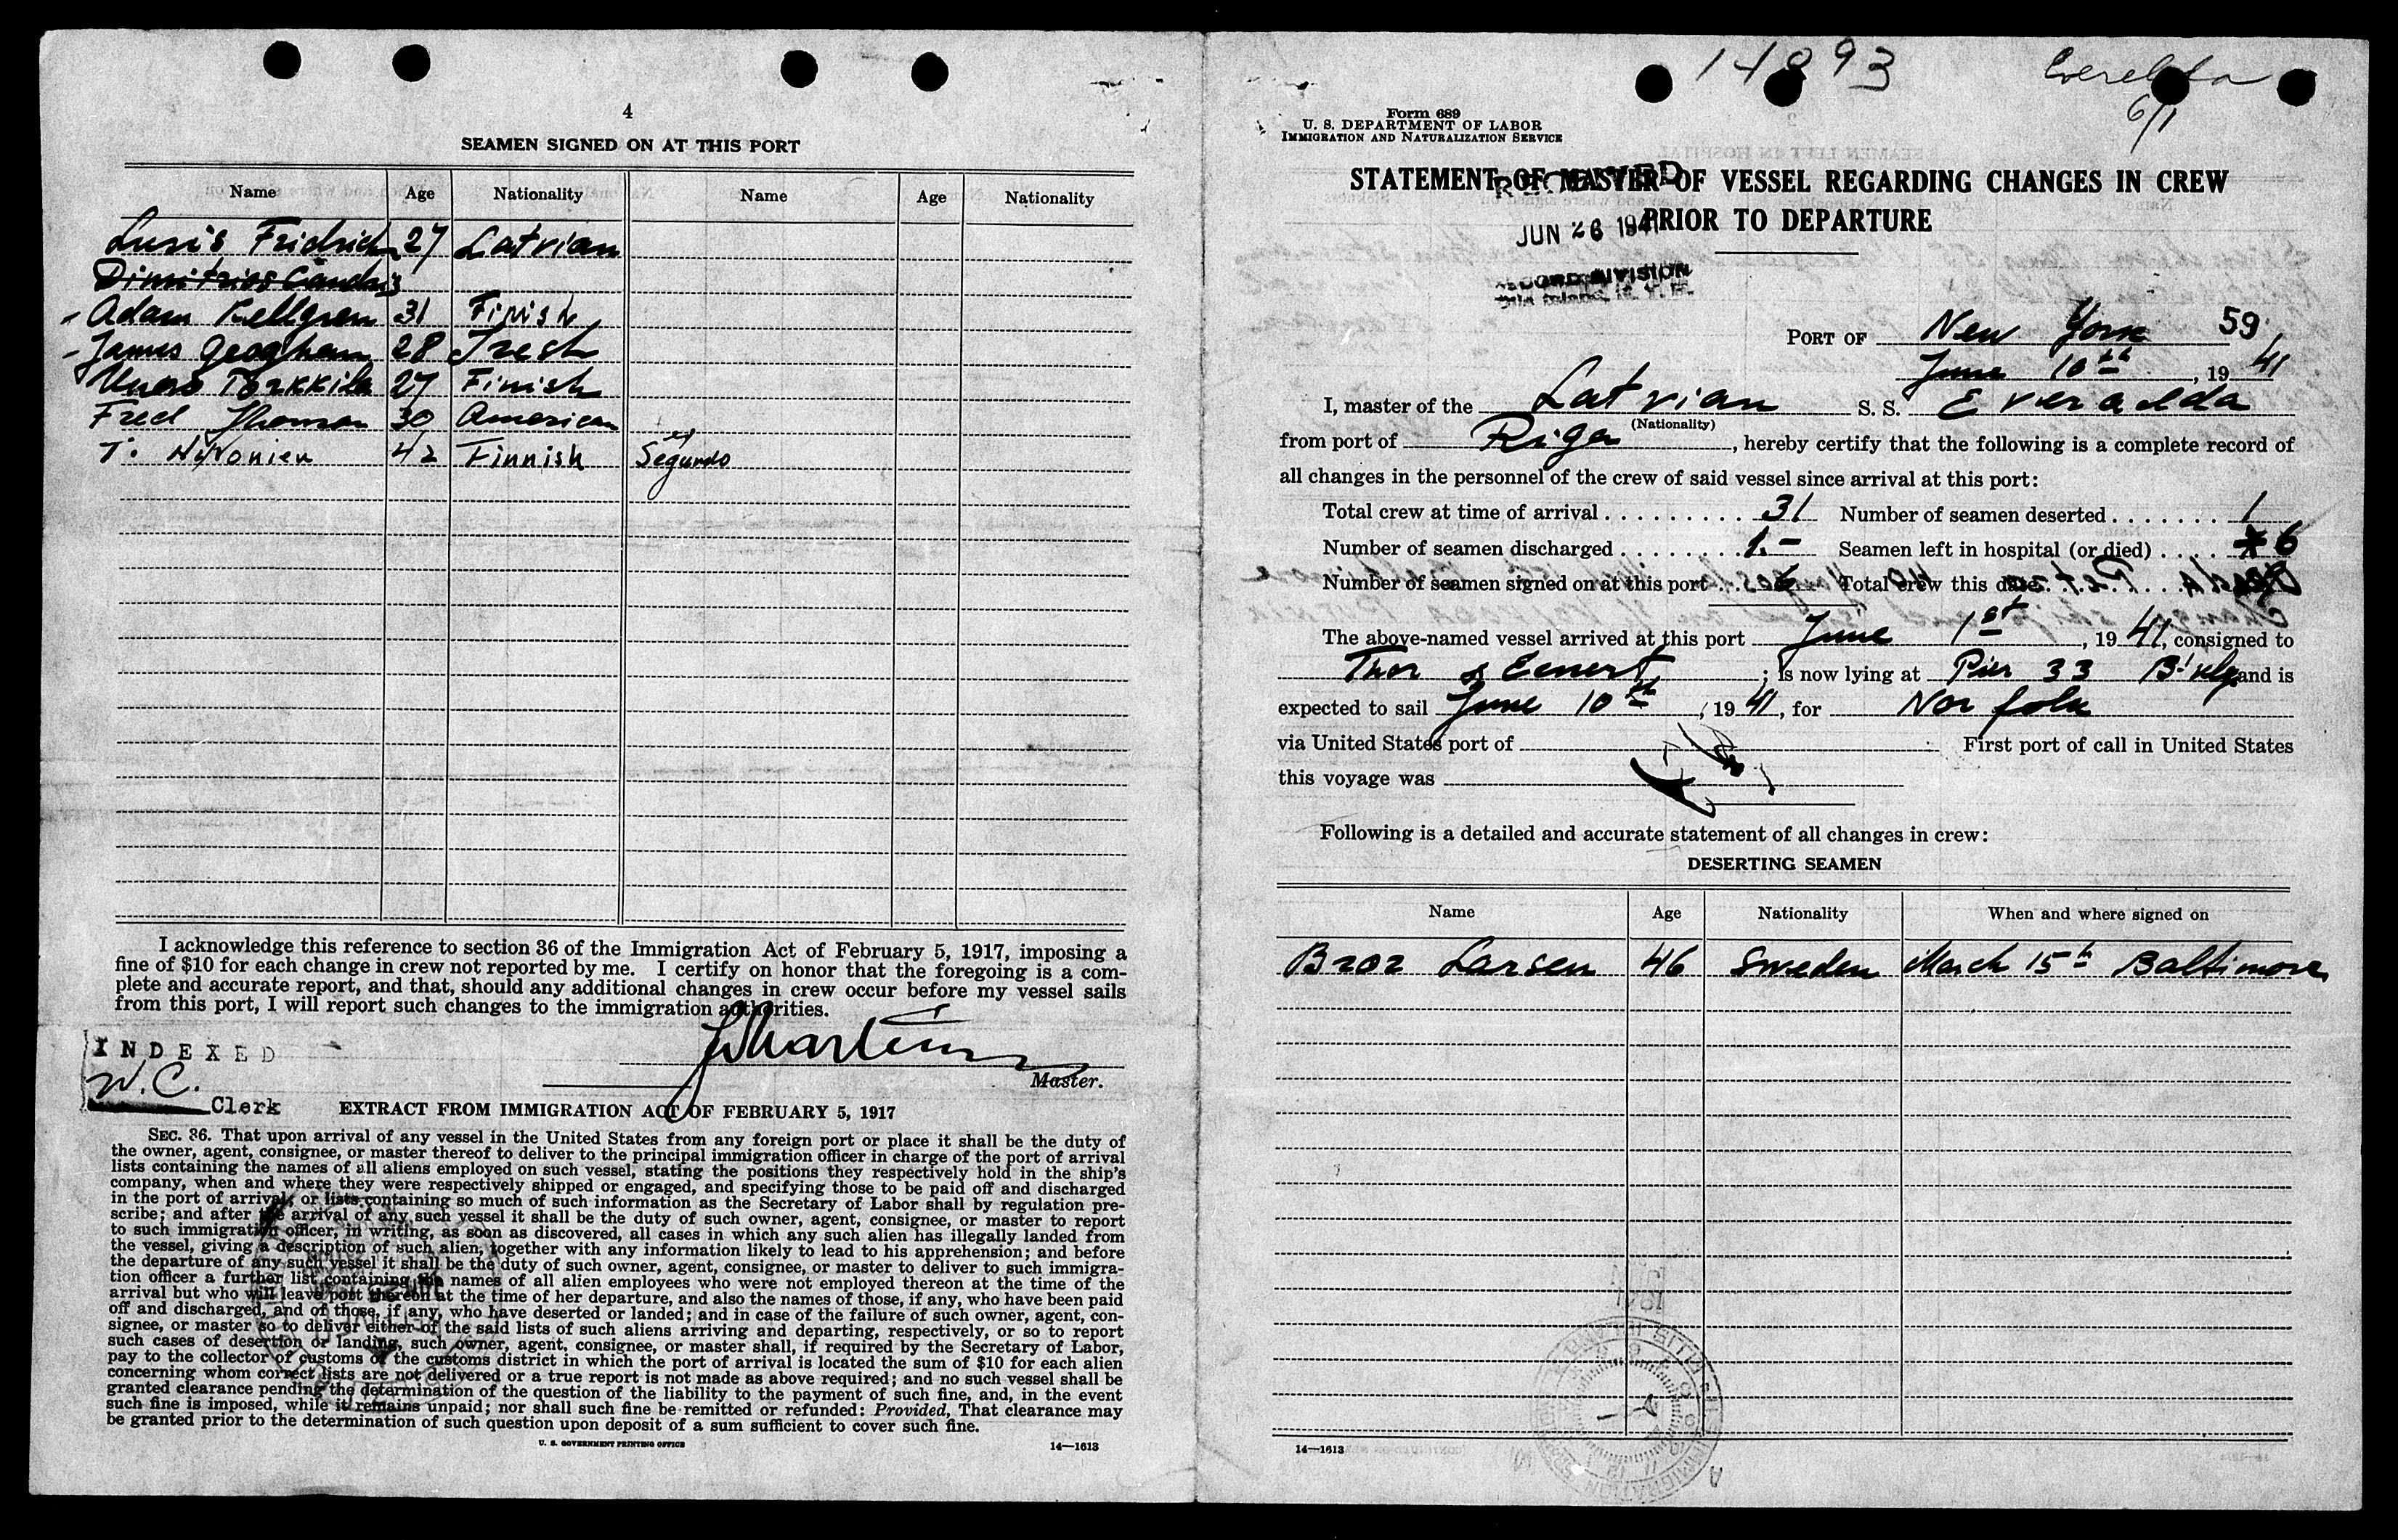 4
SEAMEN SIGNED ON AT THIS PORT
Name Age Nationality Name Age Nationality
Fridrich 27 Latvian
Dimitrios
Adam Kellgren 31 Finish
James Geoghan 28 Iresh
27 Finish
Fred Thomson 30 American
T. 42 Finnish Segundo
I acknowledge this reference to section 36 of the Immigration Act of February 5, 1917, imposing a
fine of $10 for each change in crew not reported by me. I certify on honor that the foregoing is a com-
plete and accurate report, and that, should any additional changes in crew occur before my vessel sails
from this port, I will report such changes to the immigration authorities.
INDEXED
W.C.
Master.
Clerk
EXTRACT FROM IMMIGRATION ACT OF FEBRUARY 5, 1917
SEC. 36. That upon arrival of any vessel in the United States from any foreign port or place it shall be the duty of
the owner, agent, consignee, or master thereof to deliver to the principal immigration officer in charge of the port of arrival
lists containing the names of all aliens employed on such vessel, stating the positions they respectively hold in the ship's
company, when and where they were respectively shipped or engaged, and specifying those to be paid off and discharged
in the port of arrival; or lists containing so much of such information as the Secretary of Labor shall by regulation pre-
scribe; and after the arrival of any such vessel it shall be the duty of such owner, agent, consignee, or master to report
to such immigration officer, in writing, as soon as discovered, all cases in which any such alien has illegally landed from
the vessel, giving a description of such alien, together with any information likely to lead to his apprehension; and before
the departure of any such vessel it shall be the duty of such owner, agent, consignee, or master to deliver to such immigra-
tion officer a further list containing the names of all alien employees who were not employed thereon at the time of the
arrival but who will leave port thereon at the time of her departure, and also the names of those, if any, who have been paid
off and discharged, and of those, if any, who have deserted or landed; and in case of the failure of such owner, agent, con-
signee, or master so to deliver either of the said lists of such aliens arriving and departing, respectively, or so to report
such cases of desertion or landing, such owner, agent, consignee, or master shall, if required by the Secretary of Labor,
pay to the collector of customs of the customs district in which the port of arrival is located the sum of $10 for each alien
concerning whom correct lists are not delivered or a true report is not made as above required; and no such vessel shall be
granted clearance pending the determination of the question of the liability to the payment of such fine, and, in the event
such fine is imposed, while it remains unpaid; nor shall such fine be remitted or refunded: Provided, That clearance may
be granted prior to the determination of such question upon deposit of a sum sufficient to cover such fine.
U. S. GOVERNMENT PRINTING OFFICE 14—1613
14893
6/1
Form 689
U. S. DEPARTMENT OF LABOR
IMMIGRATION AND NATURALIZATION SERVICE
STATEMENT OF MASTER OF VESSEL REGARDING CHANGES IN CREW
PRIOR TO DEPARTURE
RECEIVED
JUN 26 1941
RECORD DIVISION
PORT OF New York 59
June 10th, 1941
I, master of the Latvian S. S. Everalda
(Nationality)
from port of Riga, hereby certify that the following is a complete record of
all changes in the personnel of the crew of said vessel since arrival at this port:
Total crew at time of arrival 31 Number of seamen deserted 1
Number of seamen discharged 1.- Seamen left in hospital (or died) 6
Number of seamen signed on at this port 6 Total crew this date
The above-named vessel arrived at this port June 1st, 1941, consigned to
Thor & Eenert; is now lying at Pier 33 B'klyn and is
expected to sail June 10th, 1941, for Norfolk
via United States port of First port of call in United States
this voyage was
Following is a detailed and accurate statement of all changes in crew:
DESERTING SEAMEN
Name Age Nationality When and where signed on
Bror Larsen 46 Sweden March 15th Baltimore
14—1613